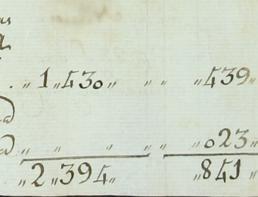 as
a
. „ 1„430„ „ „ „439
d
d „ „ „ „ „ „023„
„2„394„ „841„